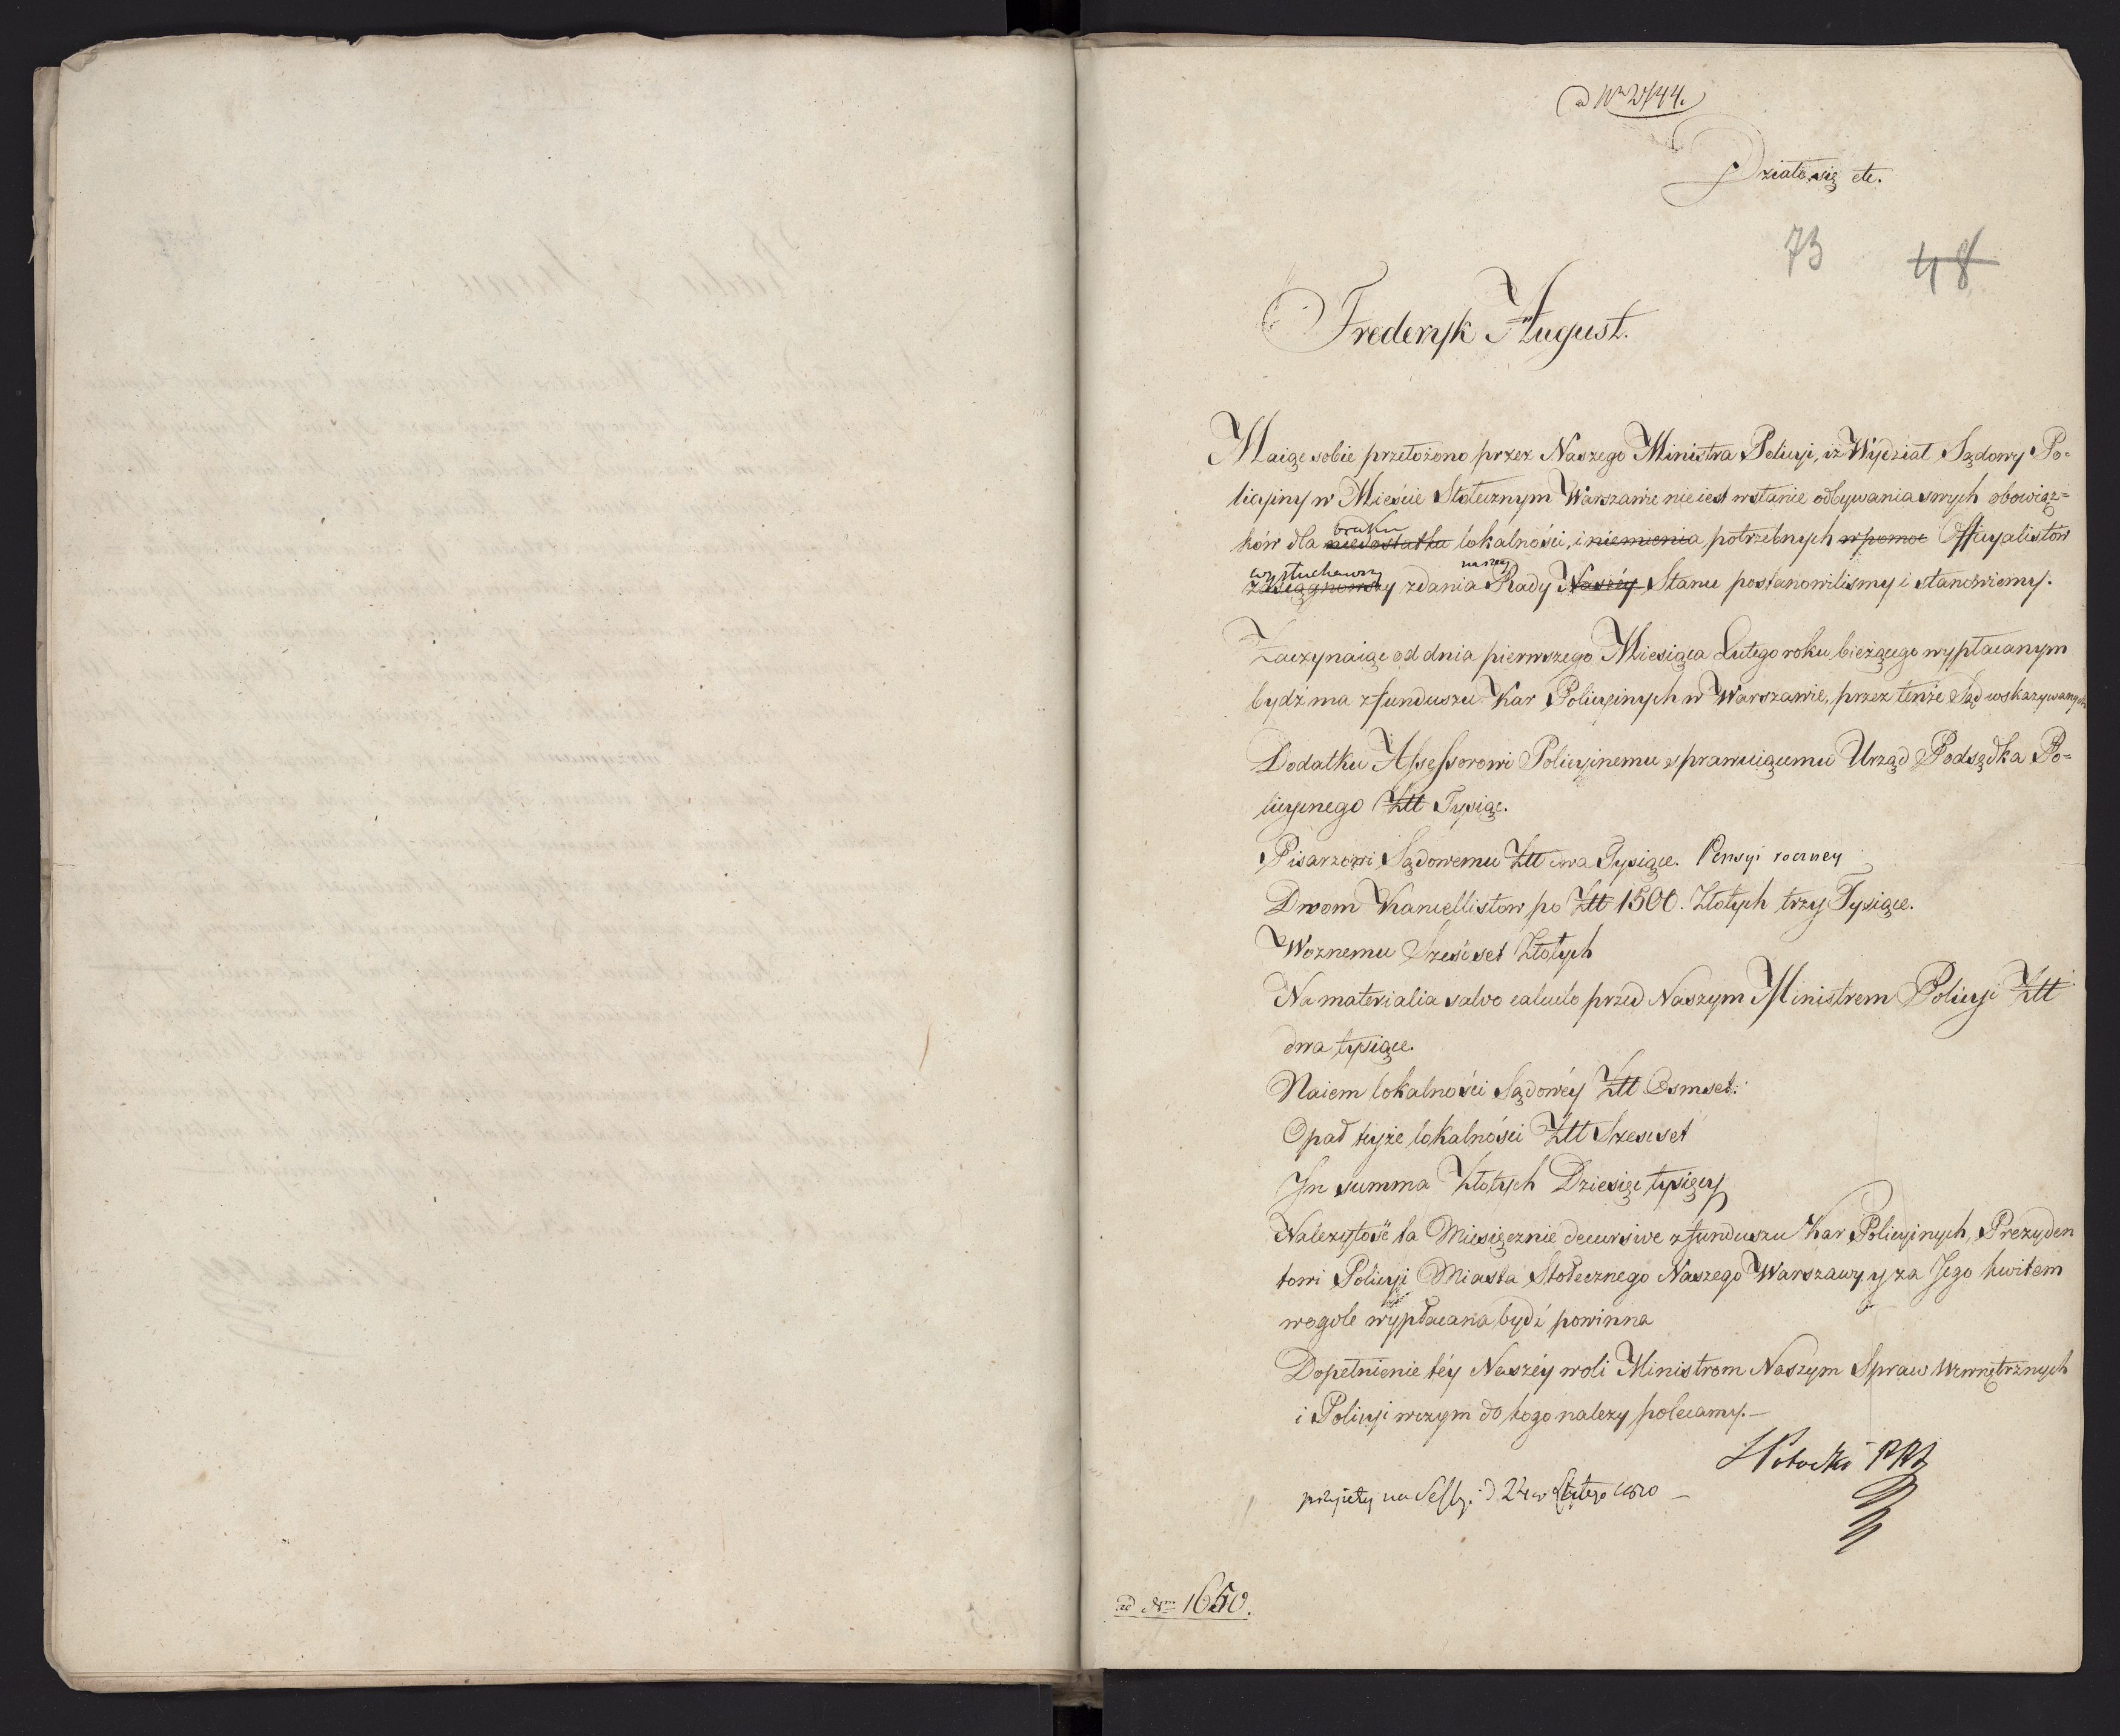 ad Nm 2144.
Działo się etc.
73 48
Frederyk August.
Maiąc sobie przełożono przez Naszego Ministra Policyi, iż Wydział Sądowy Po=
licyiny w Mieście Stołecznym Warszawie nie iest wstanie odbywania swych obowiąz=
braku
ków dla niedostatku lokalności, i niemienia potrzebnych w pomoc Officyalistow
wysłuchawszy naszey
zasiągnowszy zdania Rady Naszéy Stanu postanowilismy i stanowiemy.
Zaczynaiąc od dnia pierwszego Miesiąca Lutego roku bieżącego wypłacanym
bydź ma z funduszu Kar Policyinych w Warszawie, przez tenże Sąd wskazywanych
Dodatku Assessorowi Policyinemu sprawuiącemu Urząd Podsędka Po=
licyinego Złł Tysiąc.
Pisarzowi Sądowemu Złł dwa Tysiące. Pensyi roczney
Dwom Kancellistow po Złł 1500. Złotych trzy Tysiące.
Woznemu Sześćset Złotych
Na materialia salvo calculo przed Naszym Ministrem Policyi Złł
dwa tysiące.
Naiem lokalności Sądowéy Złł Osmset.
Opał teyże lokalności Złł Szescset
In summa Złotych Dziesięc tysięcy
Nalezytość ta Miesięcznie decursive z funduszu Kar Policyinych, Prezyden
towi Policyi Miasta Stołecznego Naszego Warszawy y za Jego kwitem
wogole wypłacana bydź powinna
Dopełnienie téy Naszéy woli Ministrom Naszym Spraw Wewnętrznych
i Policyi wczym do kogo nalezy polecamy.—
Potocki PRS
przyięty na Sessyi d 24 Lutego 1810 —
ad Nm 1650.